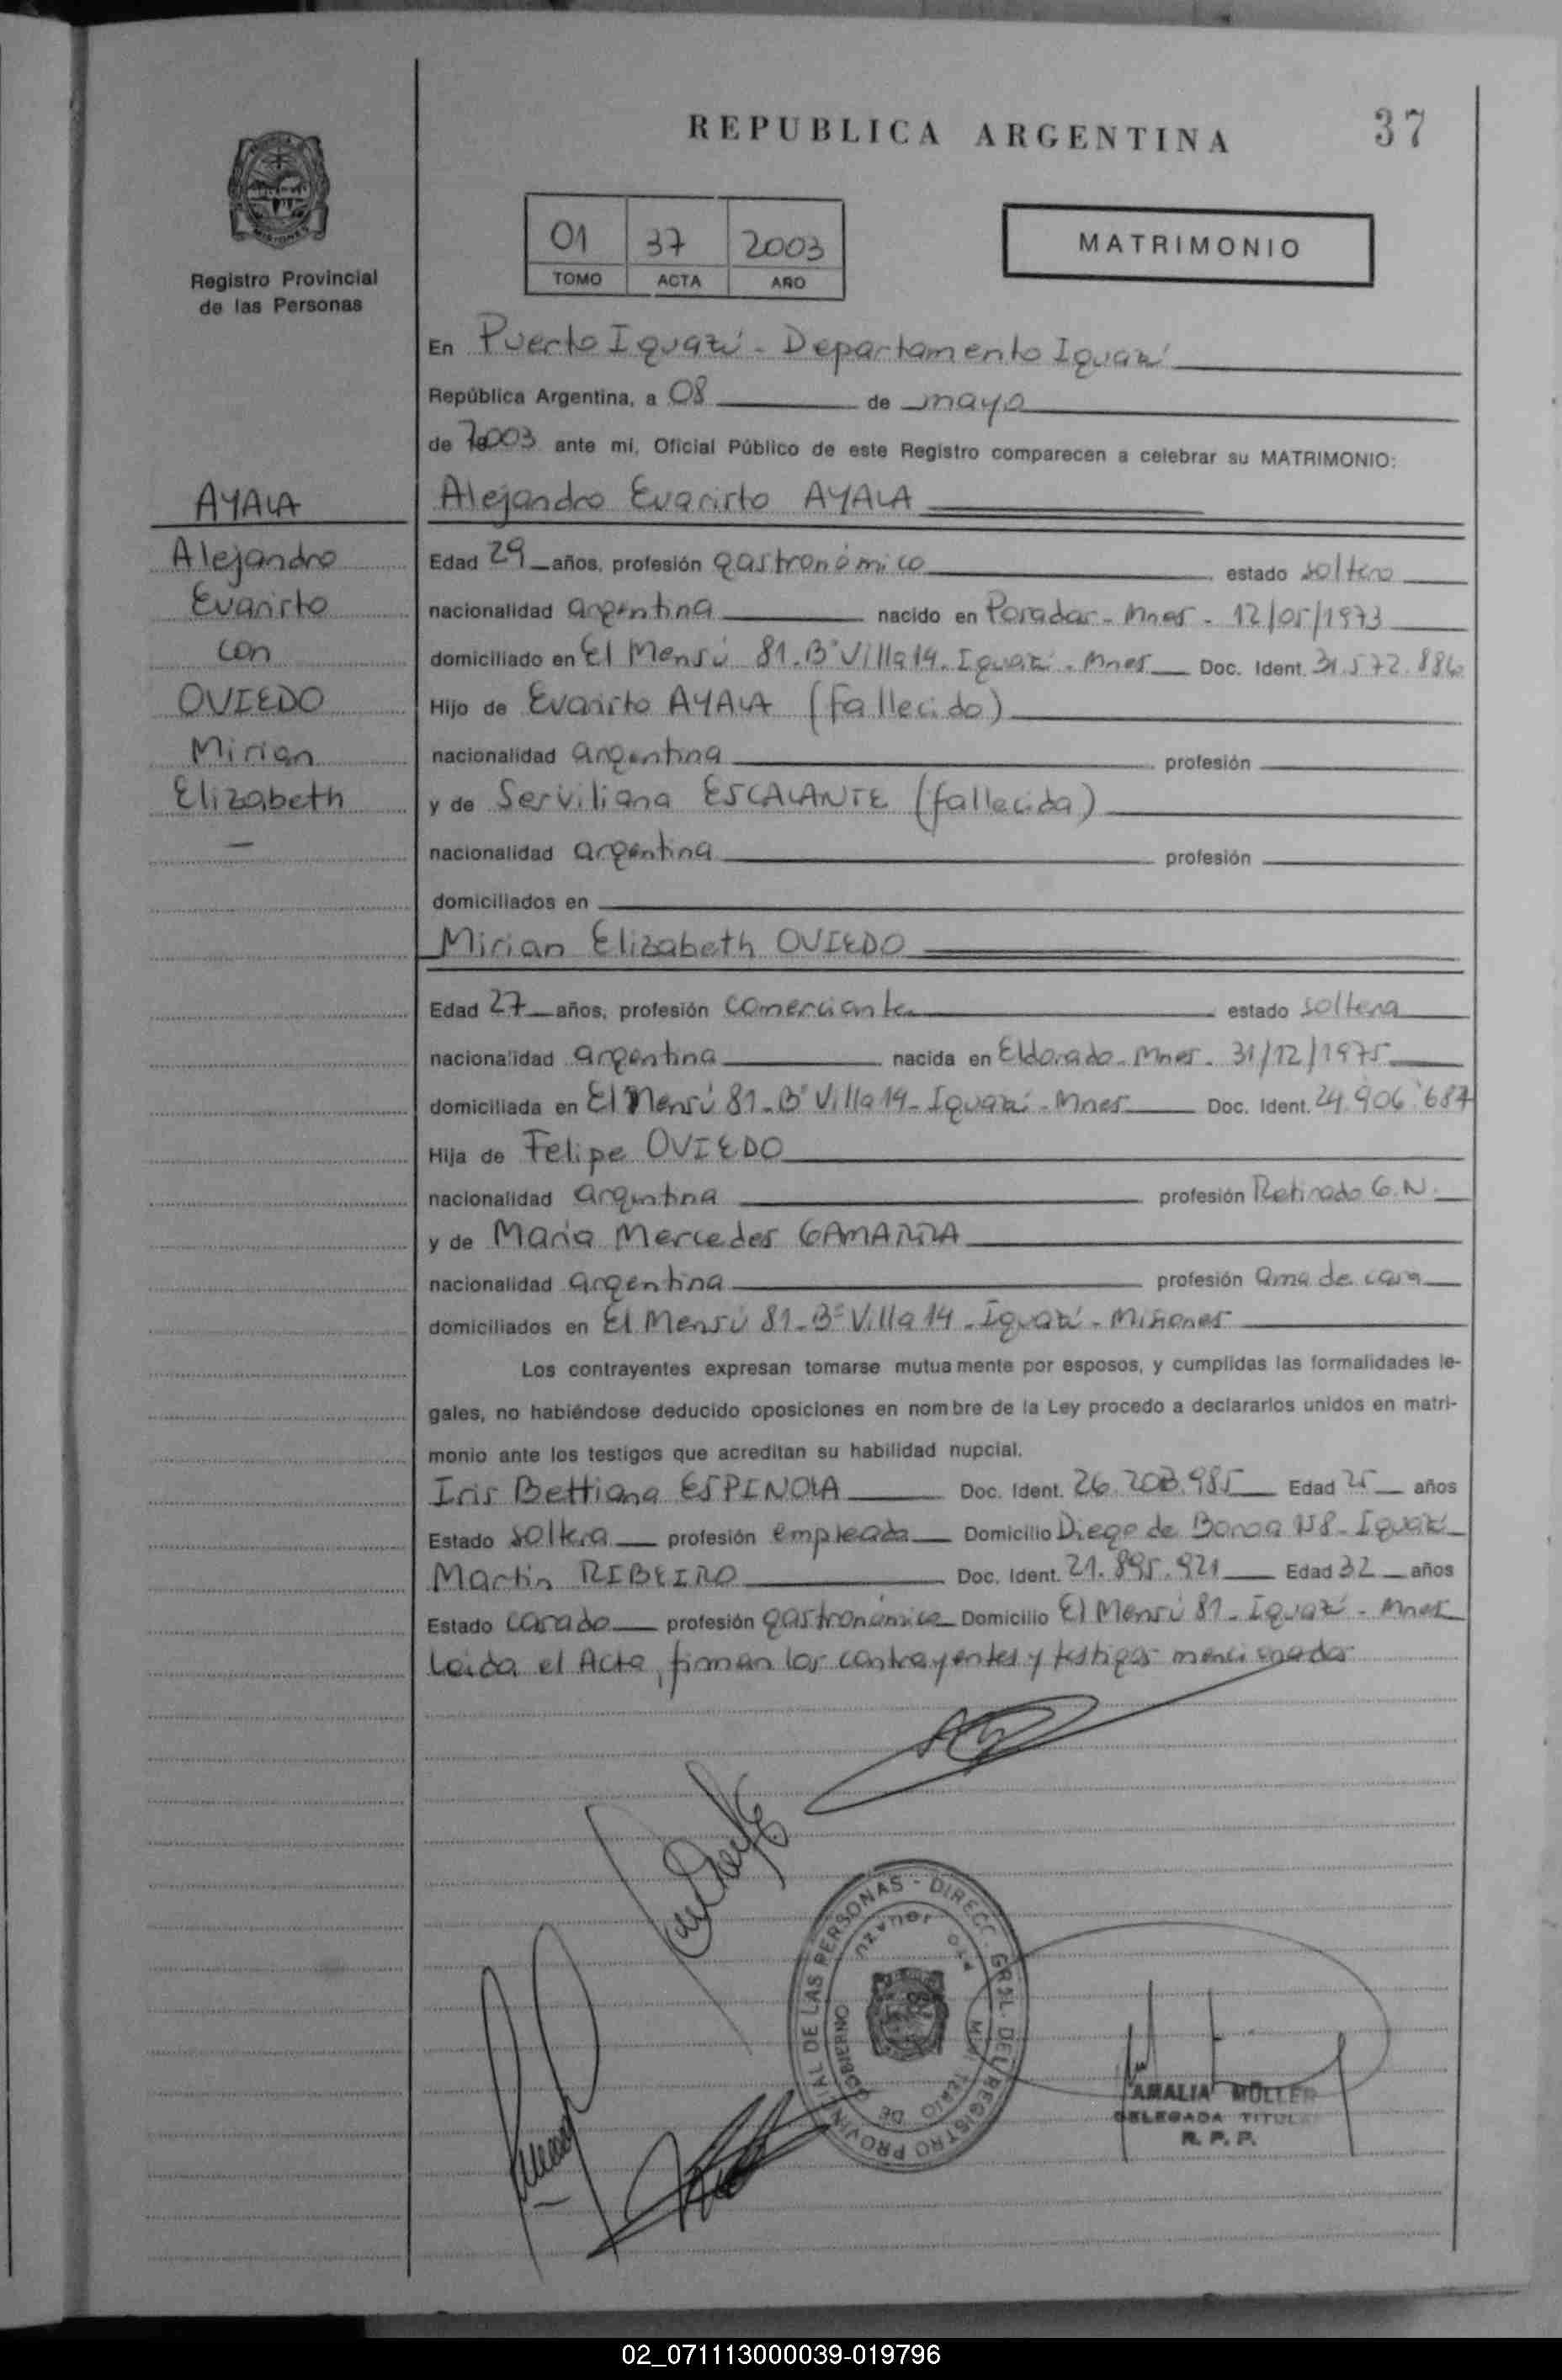 REPUBLICA ARGENTINA
37
MISIONES
Registro Provincial
de las Personas
01 37 2003
TOMO ACTA AÑO
MATRIMONIO
En Puerto Iguazú - Departamento Iguazú
República Argentina, a 08 de mayo
de 2003 ante mi, Oficial Público de este Registro comparecen a celebrar su MATRIMONIO:
AYALA
Alejandro
Evaristo
con
OVIEDO
Mirian
Elizabeth
Alejandro Evaristo AYALA
Edad 29 años, profesión gastronómico estado soltero
nacionalidad argentina nacido en Posadas - Mnes - 12/05/1973
domiciliado en El Mensú 81 - Bº Villa 14 - Iguazú - Mnes Doc. Ident. 31.572.886
Hijo de Evaristo AYALA (fallecido)
nacionalidad argentina profesión
y de Serviliana ESCALANTE (fallecida)
nacionalidad argentina profesión
domiciliados en
Mirian Elizabeth OVIEDO
Edad 27 años, profesión comerciante estado soltera
nacionalidad argentina nacida en Eldorado - Mnes - 31/12/1975
domiciliada en El Mensú 81 - Bº Villa 14 - Iguazú - Mnes Doc. Ident. 24.906.687
Hija de Felipe OVIEDO
nacionalidad argentina profesión Retirado G.N.
y de María Mercedes GAMARRA
nacionalidad argentina profesión ama de casa
domiciliados en El Mensú 81 - Bº Villa 14 - Iguazú - Misiones
Los contrayentes expresan tomarse mutuamente por esposos, y cumplidas las formalidades le-
gales, no habiéndose deducido oposiciones en nombre de la Ley procedo a declararlos unidos en matri-
monio ante los testigos que acreditan su habilidad nupcial.
Iris Bettiana ESPINOLA Doc. Ident. 26.208.985 Edad 25 años
Estado soltera profesión empleada Domicilio Diego de Iguazú
Martin RIBEIRO Doc. Ident. 21.895.921 Edad 32 años
Estado casado profesión gastronómico Domicilio El Mensú 81 - Iguazú - Mnes
Leida el Acta, firman los contrayentes y testigos mencionados
DIRECC. GRAL. DEL REGISTRO PROVINCIAL DE LAS PERSONAS
MINISTERIO DE GOBIERNO
PTO IGUAZU
AMALIA MÜLLER
DELEGADA TITULAR
R. P. P.
02_071113000039-019796